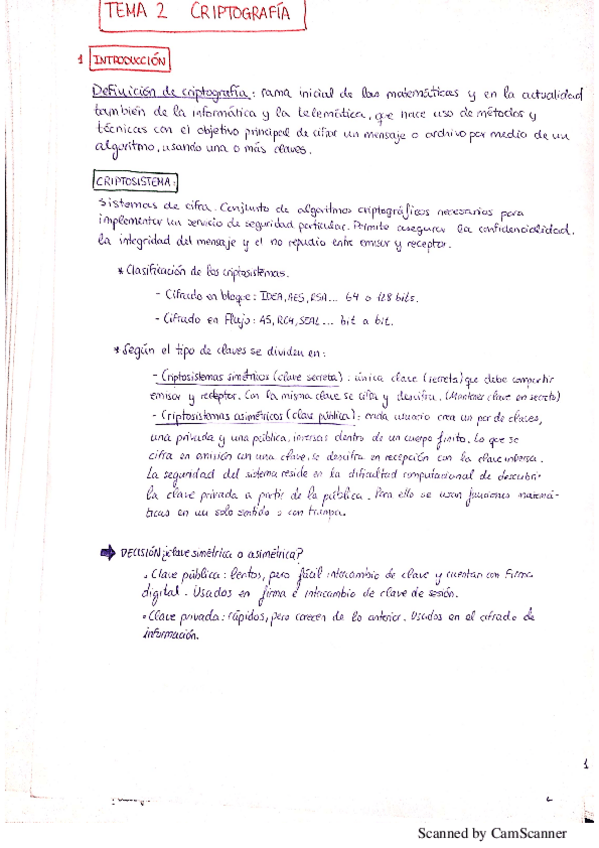 TEMA 2 CRIPTOGRAFÍA
1 INTRODUCCIÓN
Definición de criptografía: rama inicial de las matemáticas y en la actualidad
también de la informática y la telemática, que hace uso de métodos y
técnicas con el objetivo principal de cifrar un mensaje o archivo por medio de un
algoritmo, usando una o más claves.
CRIPTOSISTEMA:
Sistemas de cifra. Conjunto de algoritmos criptográficos necesarios para
implementar un servicio de seguridad particular. Permite asegurar la confidencialidad,
la integridad del mensaje y el no repudio entre emisor y receptor.
* Clasificación de los criptosistemas.
- Cifrado en bloque: IDEA, AES, RSA... 64 o 128 bits.
- Cifrado en Flujo: A5, RC4, SEAL... bit a bit.
* Según el tipo de claves se dividen en:
- Criptosistemas simétricos (clave secreta): única clave (secreta) que debe compartir
emisor y receptor. Con la misma clave se cifra y descifra. (Mantener clave en secreto)
- Criptosistemas asimétricos (clave pública): cada usuario crea un par de claves,
una privada y una pública, inversas dentro de un cuerpo finito. Lo que se
cifra en emisión con una clave, se descifra en recepción con la clave inversa.
La seguridad del sistema reside en la dificultad computacional de descubrir
la clave privada a partir de la pública. Para ello se usan funciones matemá-
ticas en un solo sentido o con trampa.
➡ DECISIÓN: ¿clave simétrica o asimétrica?
• Clave pública: lentos, pero fácil intercambio de clave y cuentan con firma
digital. Usados en firma e intercambio de clave de sesión.
• Clave privada: rápidos, pero carecen de lo anterior. Usados en el cifrado de
información.
1
Scanned by CamScanner